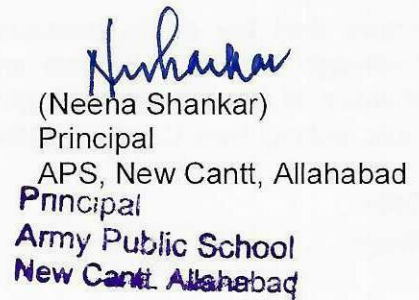 NShankar
(Neena Shankar)
Principal
APS, New Cantt, Allahabad
Principal
Army Public School
New Cantt. Allahabad